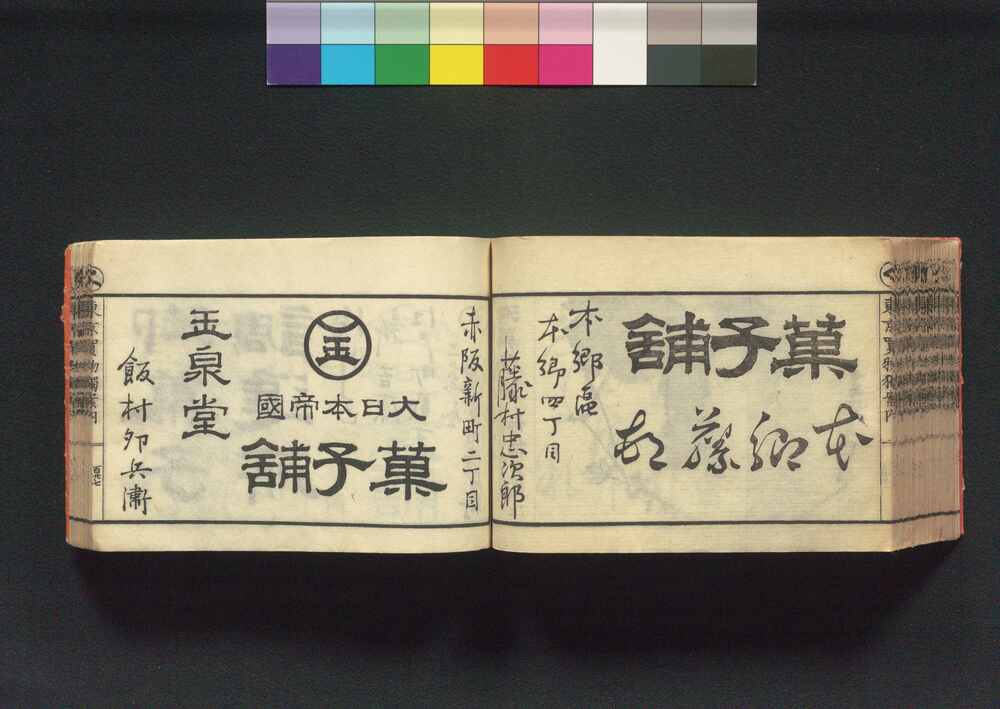 く
東京買物獨案内
菓子舖
本郷藤
本郷區
本郷四丁目
藤村忠次郎
赤阪新町二丁目
玉
大日本帝國
菓子舖
玉泉堂
飯村卯兵衛
東京買物獨案内